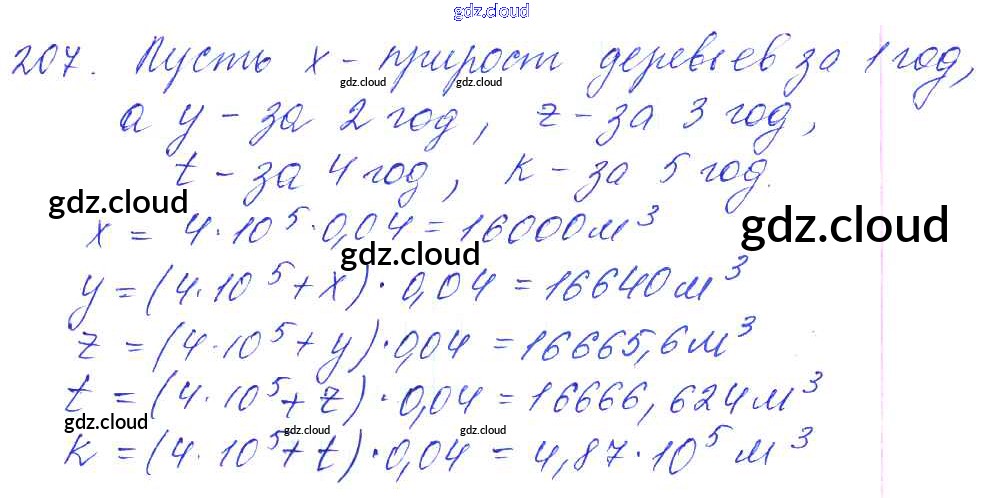 gdz.cloud
207. Пусть x - прирост деревьев за 1 год,
gdz.cloud gdz.cloud
а y - за 2 год, z - за 3 год,
t - за 4 год, k - за 5 год.
gdz.cloud
x = 4·10⁵·0,04 = 16000 м³
gdz.cloud
gdz.cloud
y = (4·10⁵ + x)·0,04 = 16640 м³
z = (4·10⁵ + y)·0,04 = 16665,6 м³
t = (4·10⁵ + z)·0,04 = 16666,624 м³
gdz.cloud gdz.cloud gdz.cloud
k = (4·10⁵ + t)·0,04 = 4,87·10⁵ м³